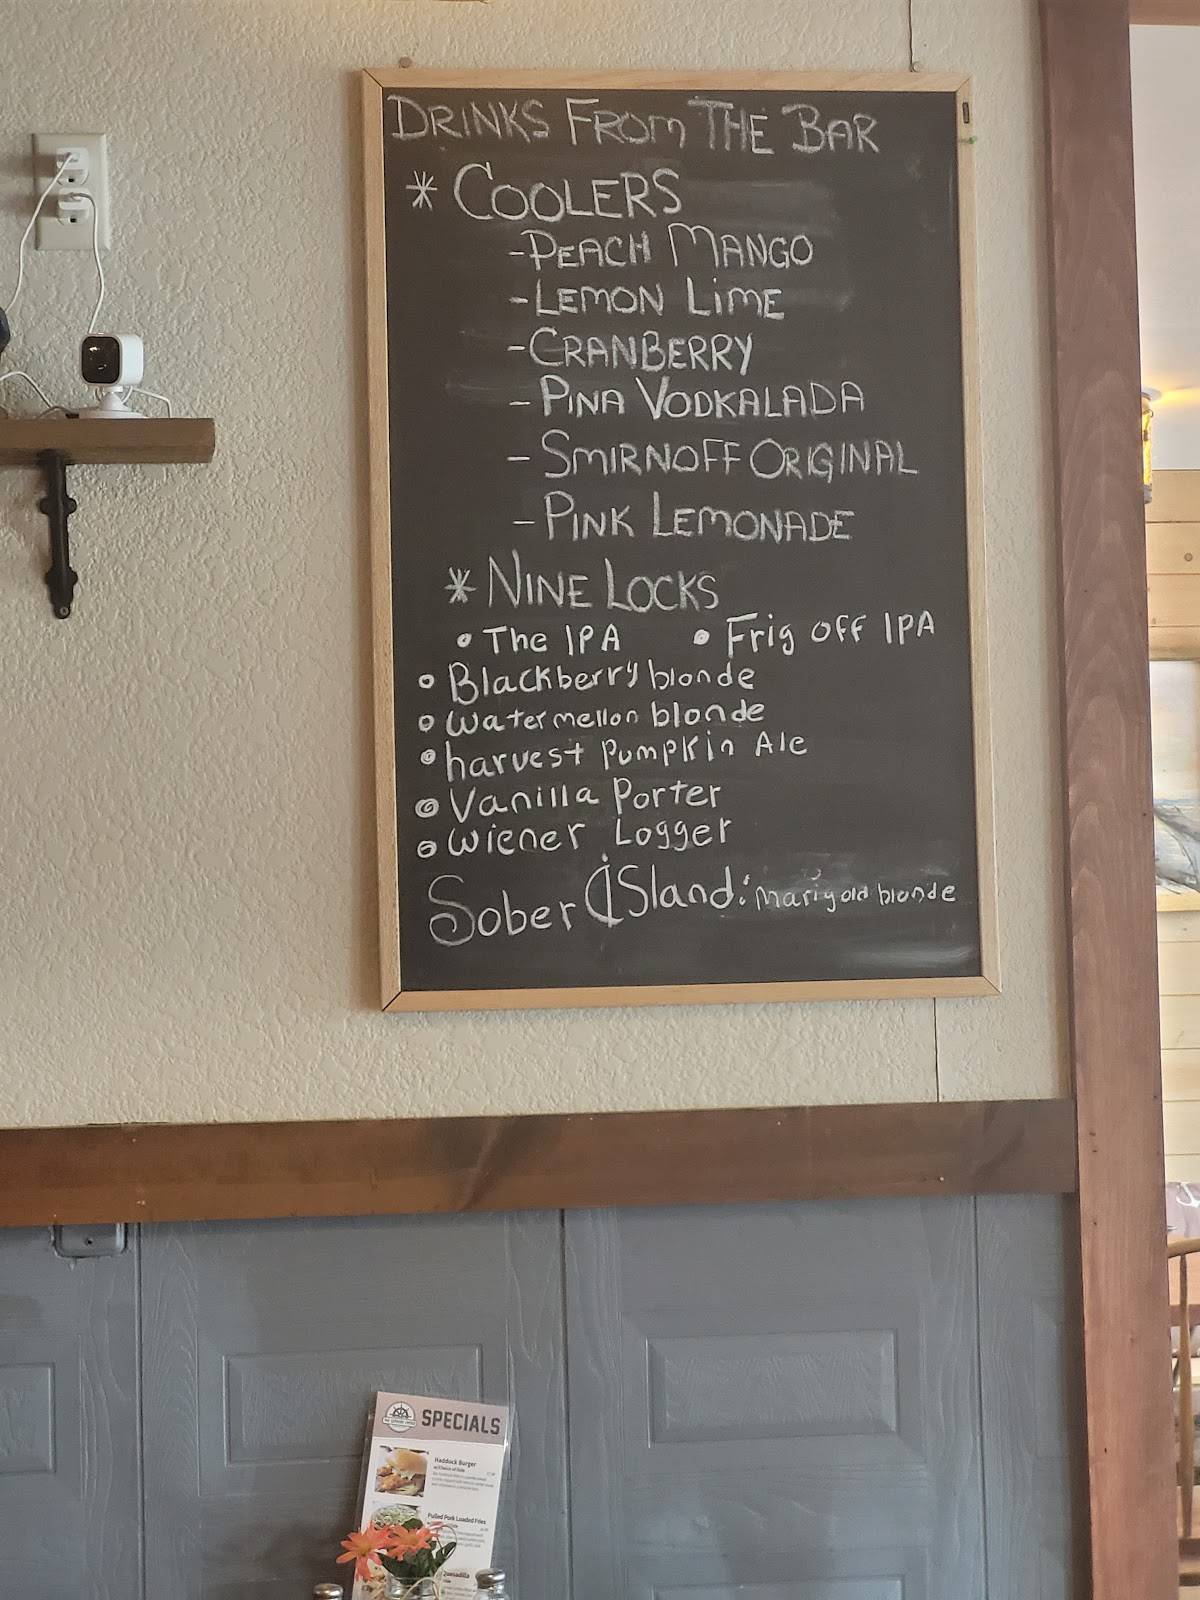 DRINKS FROM THE BAR
* COOLERS
- PEACH MANGO
- LEMON LiME
- CRANBERRY
- PINA VODKALADA
- SMIRNOFF ORIGINAL
- PINK LEMONADE
* NINE LOCKS
• The IPA • Frig off IPA
• Blackberry blonde
• watermellon blonde
• harvest pumpkin Ale
• Vanilla Porter
• wiener Logger
Sober iSland: marigold blonde
SPECIALS
Haddock Burger
Pulled Pork Loaded Fries
Quesadilla